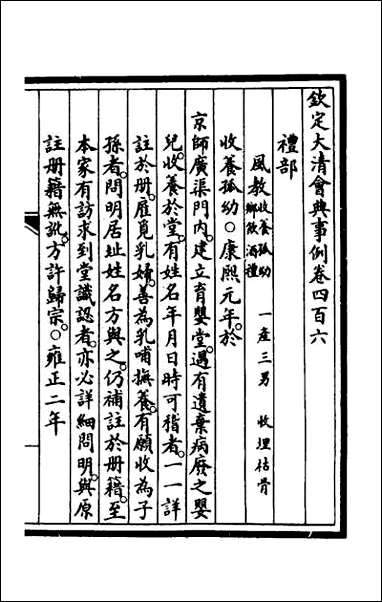 欽定大清會典事例卷四百六
禮部
風教 收養孤幼 鄉飲酒禮 一產三男 收埋枯骨
收養孤幼○康熙元年於
京師廣渠門內建立育嬰堂遇有遺棄病廢之嬰
兒收養於堂有姓名年月日時可稽者一一詳
註於冊雇覓乳婦善為乳哺撫養有願收為子
孫者問明居址姓名方與之仍補註於冊籍至
本家有訪求到堂識認者亦必詳細問明與原
註冊籍無訛方許歸宗○雍正二年